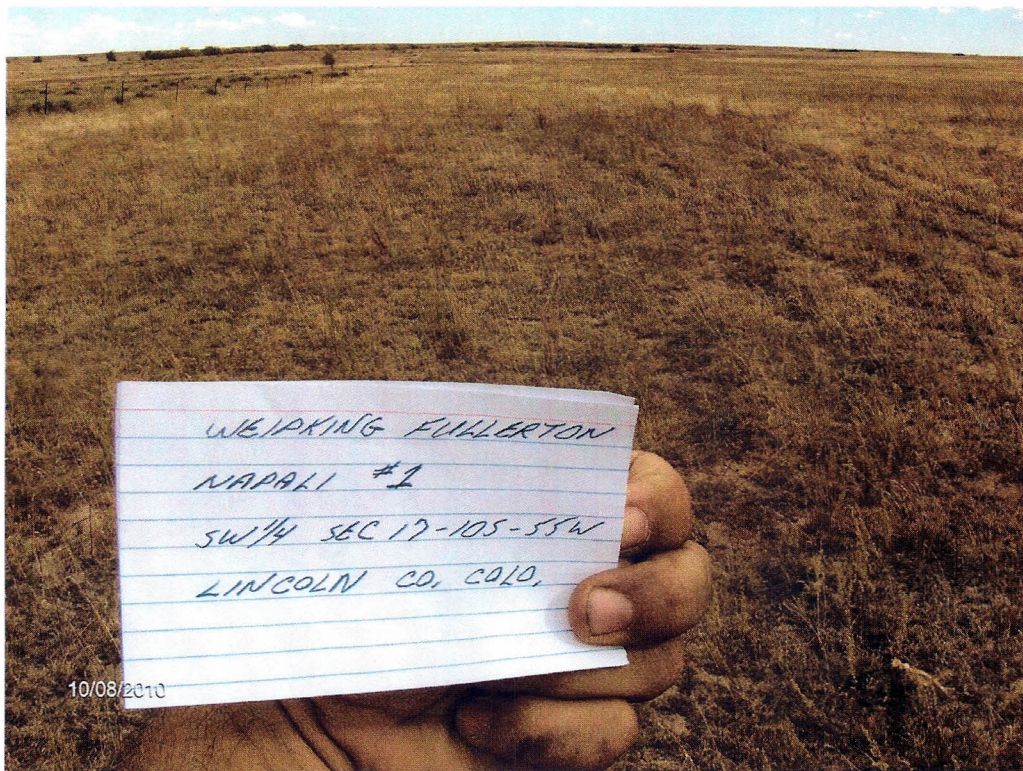 WEIPKING FULLERTON
NAPALI #1
SW 1/4 SEC 17-10S-55W
LINCOLN CO. COLO.
10/08/2010